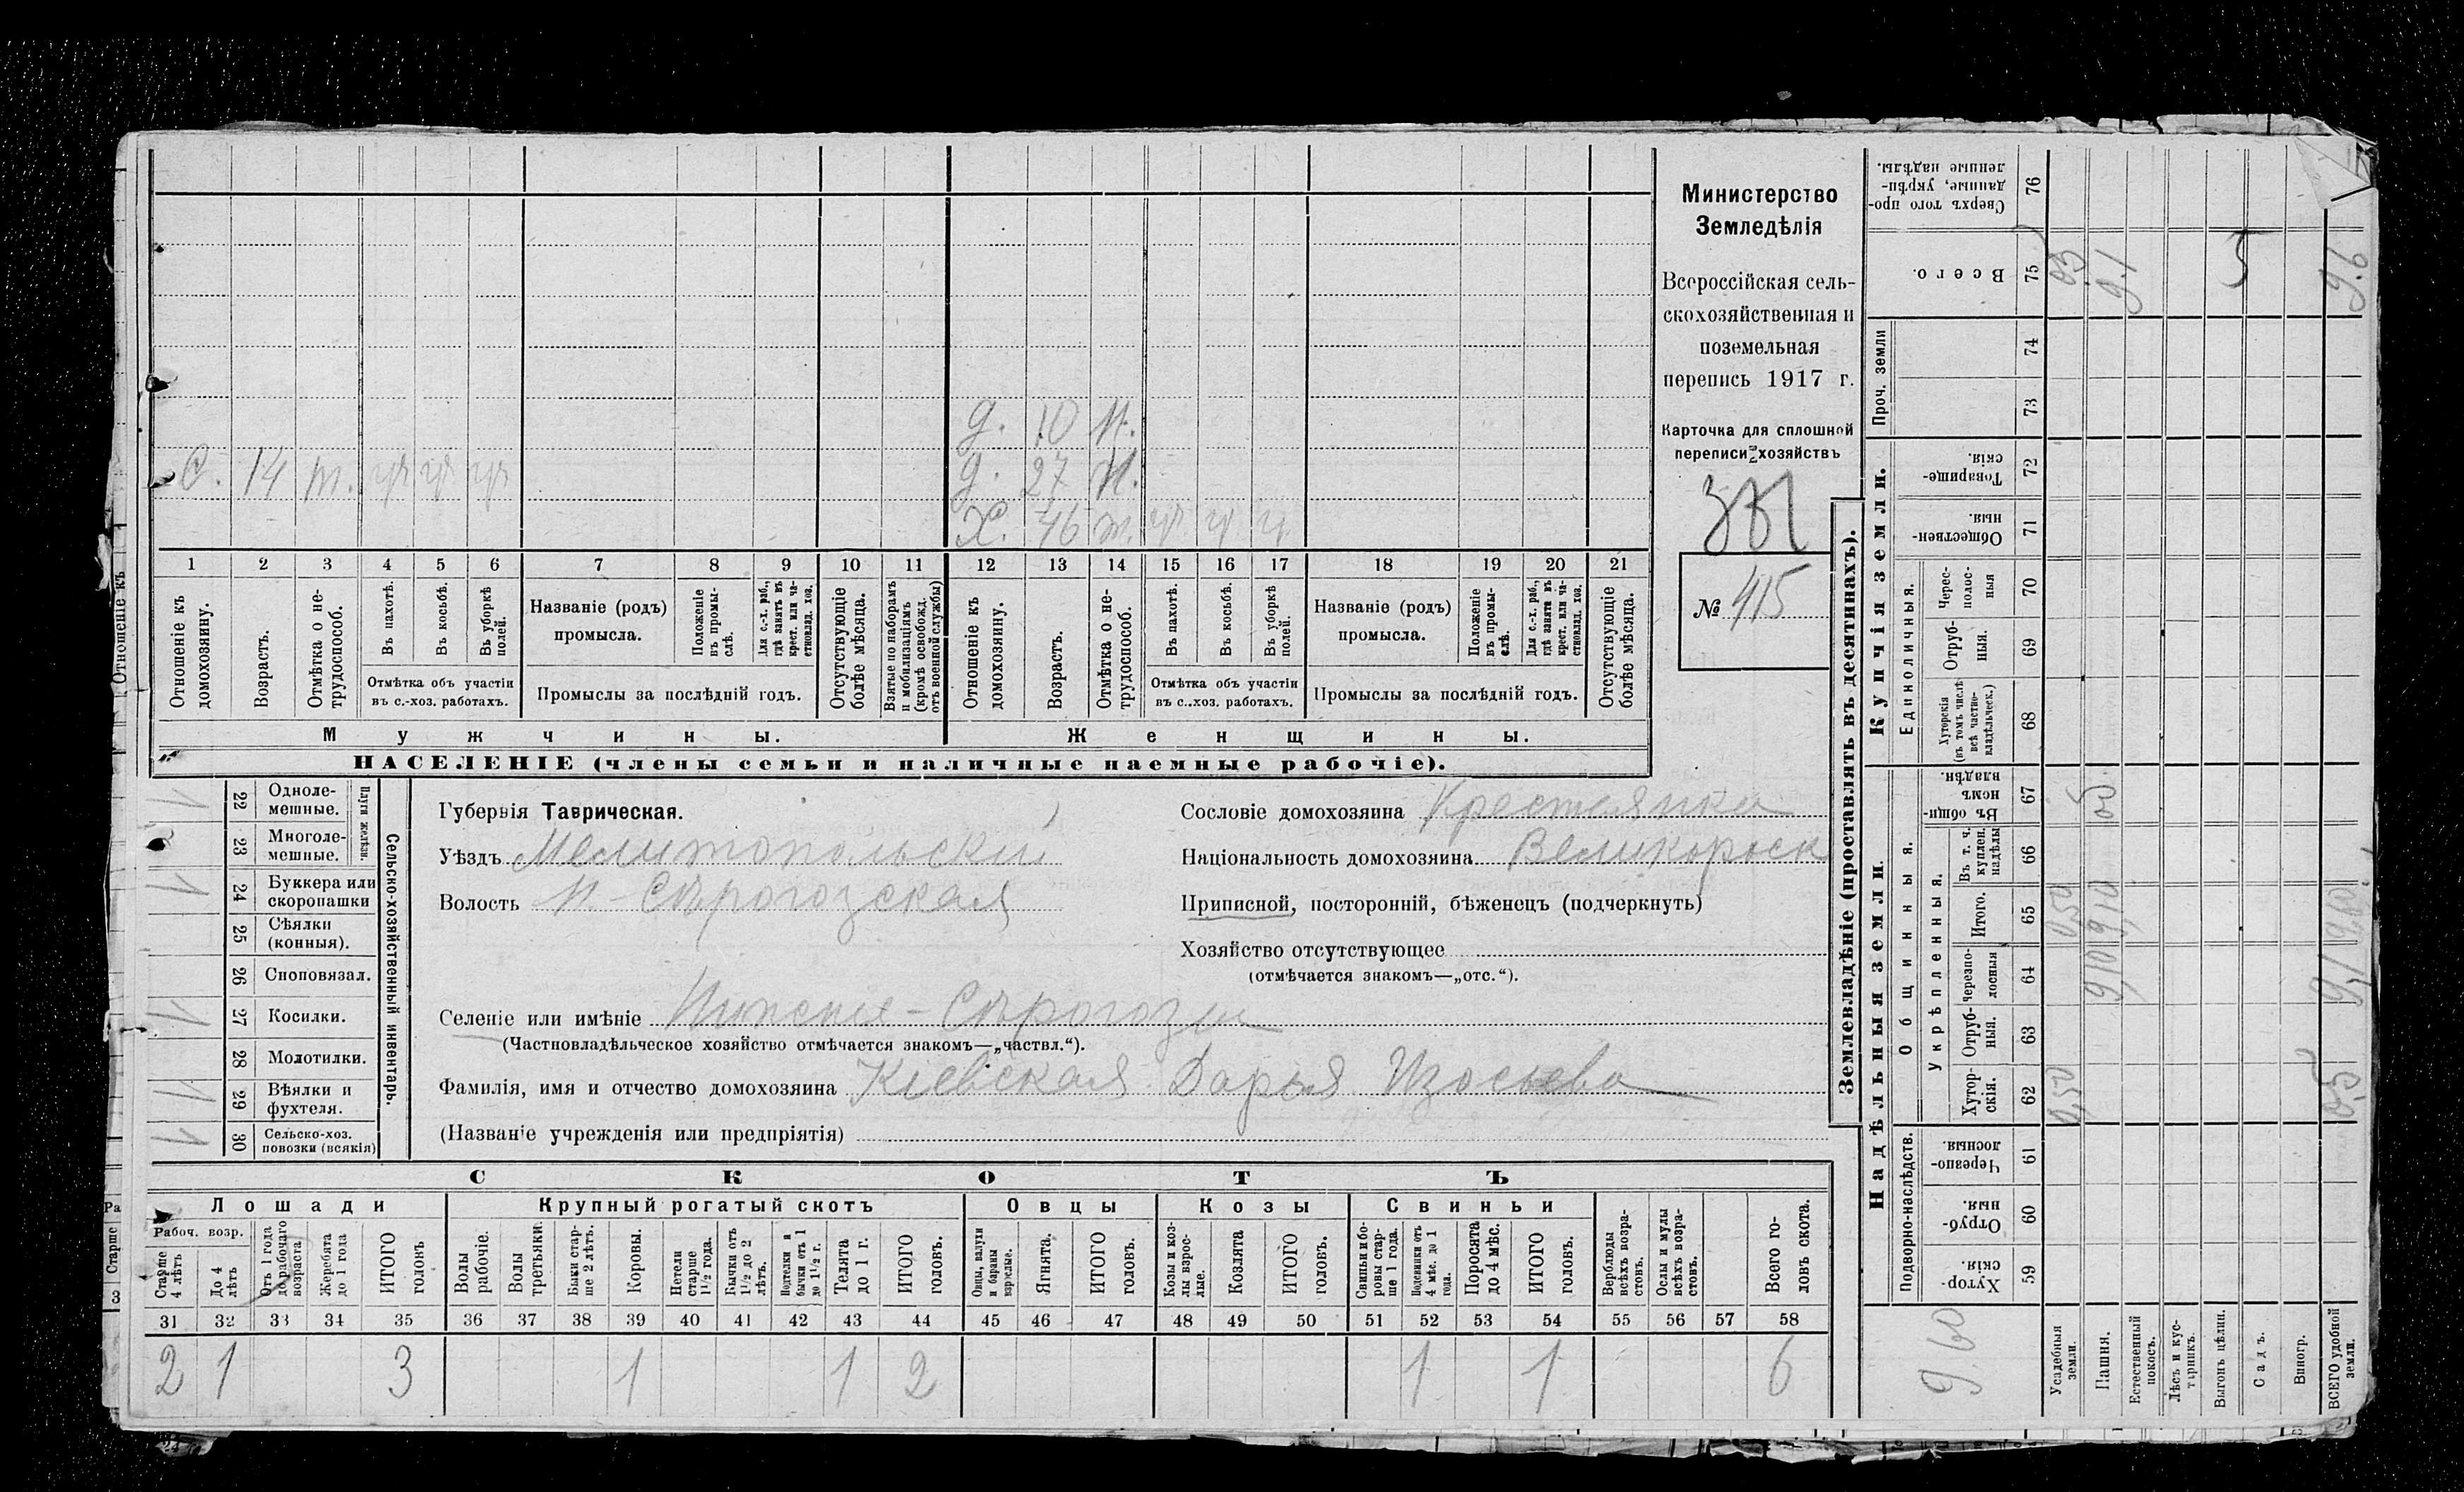 д. 10 н.
С. 14 т. уч уч уч д. 27 н.
Х. 46 т. уч. ч ч
1 2 3 4 5 6 7 8 9 10 11 12 13 14 15 16 17 18 19 20 21
Отношеніе къ домохозяину.
Возрастъ.
Отмѣтка о не-трудоспособ.
Въ пахотѣ.
Въ косьбѣ.
Въ уборкѣ полей.
Отмѣтка объ участіи
въ с.-хоз. работахъ.
Названіе (родъ)
промысла.
Положеніе въ промы-слѣ.
Для с.-х. раб., гдѣ занятъ въ крест. или ча-стновлад. хоз.
Промыслы за послѣдній годъ.
Отсутствующіе болѣе мѣсяца.
Взятые по наборамъ и мобилизаціямъ (кромѣ освобожд. отъ военной службы)
Отношеніе къ домохозяину.
Возрастъ.
Отмѣтка о не-трудоспособ.
Въ пахотѣ.
Въ косьбѣ.
Въ уборкѣ полей.
Отмѣтка объ участіи
въ с.-хоз. работахъ.
Названіе (родъ)
промысла.
Положеніе въ промы-слѣ.
Для с.-х. раб., гдѣ занята въ крест. или ча-стновлад. хоз.
Промыслы за послѣдній годъ.
Отсутствующіе болѣе мѣсяца.
Мужчины. Женщины.
НАСЕЛЕНІЕ (члены семьи и наличные наемные рабочіе).
Министерство
Земледѣлія
Всероссійская сель-
скохозяйственная и
поземельная
перепись 1917 г.
Карточка для сплошной
переписи хозяйствъ
№ 415
Отношеніе къ
22 Одноле-мешные.
23 Многоле-мешные.
Плуги желѣзн.
24 Буккера или скоропашки
25 Сѣялки (конныя).
26 Споповязал.
27 Косилки.
28 Молотилки.
29 Вѣялки и фухтеля.
30 Сельско-хоз. повозки (всякія)
Сельско-хозяйственный инвентарь.
Губернія Таврическая.
Уѣздъ Мелитопольскій
Волость Н-Сѣрогозская
Сословіе домохозяина Крестьянка
Національность домохозяина Великоросск
Приписной, посторонній, бѣженецъ (подчеркнуть)
Хозяйство отсутствующее
(отмѣчается знакомъ—„отс.“).
Селеніе или имѣніе Нижніе-Сѣрогозы
(Частновладѣльческое хозяйство отмѣчается знакомъ—„частвл.“).
Фамилія, имя и отчество домохозяина Кіевская Дарья Изосьева
(Названіе учрежденія или предпріятія)
СКОТЪ
Лошади Крупный рогатый скотъ Овцы Козы Свиньи
Рабоч. возр.
Старше 4 лѣтъ
До 4 лѣтъ
Отъ 1 года до рабочаго возраста
Жеребята до 1 года
ИТОГО головъ
Волы рабочіе.
Волы третьяки.
Быки стар-ше 2 лѣтъ.
Коровы.
Нетели старше 1½ года.
Бычки отъ 1½ до 2 лѣтъ.
Подтелки и бычки отъ 1 до 1½ г.
Телята до 1 г.
ИТОГО головъ.
Овцы, валухи и бараны взрослые.
Ягнята.
ИТОГО головъ.
Козы и коз-лы взрос-лые.
Козлята
ИТОГО головъ.
Свиньи и бо-ровы стар-ше 1 года.
Подсвинки отъ 4 мѣс. до 1 года.
Поросята до 4 мѣс.
ИТОГО головъ.
Верблюды всѣхъ возра-стовъ.
Ослы и мулы всѣхъ возра-стовъ.
Всего го-ловъ скота.
31 32 33 34 35 36 37 38 39 40 41 42 43 44 45 46 47 48 49 50 51 52 53 54 55 56 57 58
2 1 3 1 1 2 1 1 6
Землевладѣніе (проставлять въ десятинахъ).
Надѣльныя земли.
Купчія земли.
Проч. земли
Подворно-наслѣдств.
Общинныя.
Укрѣпленныя.
Единоличныя.
Хутор-скія. 59
Отруб-ныя. 60
Черезпо-лосныя 61
Хутор-скія. 62
Отруб-ныя. 63
Черезпо-лосныя 64
Итого. 65
Въ т. ч. куплен. надѣлы 66
Въ общи-номъ владѣн. 67
Хуторскія (въ томъ числѣ всѣ частно-владѣльческ.) 68
Отруб-ныя. 69
Черес-полос-ныя 70
Обществен-ныя. 71
Товарище-скія. 72
73
74
Всего. 75
Сверхъ того про-данные, укрѣп-ленные надѣлы. 76
9.60
Усадебныя земли. 0,50 0,50
Пашня. 9,10 9,10 9.1
Естественный покосъ.
Лѣсъ и кус-тарникъ.
Выгонъ цѣлин.
Садъ.
Виногр.
ВСЕГО удобной земли. 0,5 9,1 9,60 9.6